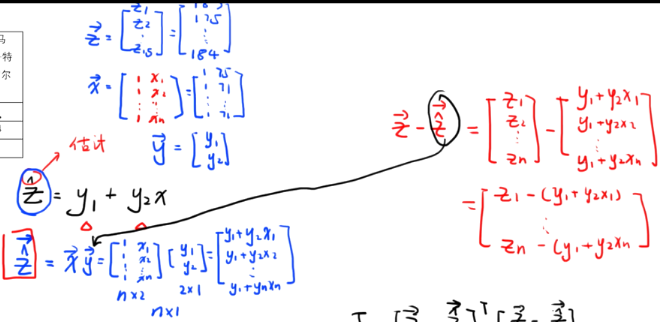 马
特
尔
z⃗ = [z₁ z₂ ⋮ z₁₅] = [ 175 ⋮ 184]
x⃗ = [1 x₁ 1 x₂ ⋮ ⋮ 1 xₙ] = [1 75 1 71 ⋮ ⋮ 1 71]
估计
y⃗ = [y₁ y₂]
ẑ = y₁ + y₂x
z⃗̂ = x⃗ y⃗ = [1 x₁ 1 x₂ ⋮ ⋮ 1 xₙ] [y₁ y₂] = [y₁+y₂x₁ y₁+y₂x₂ ⋮ y₁+yₙxₙ]
n×2 2×1
n×1
z⃗ - z⃗̂ = [z₁ z₂ ⋮ zₙ] - [y₁+y₂x₁ y₁+y₂x₂ ⋮ y₁+y₂xₙ]
= [z₁-(y₁+y₂x₁) ⋮ zₙ-(y₁+y₂xₙ)]